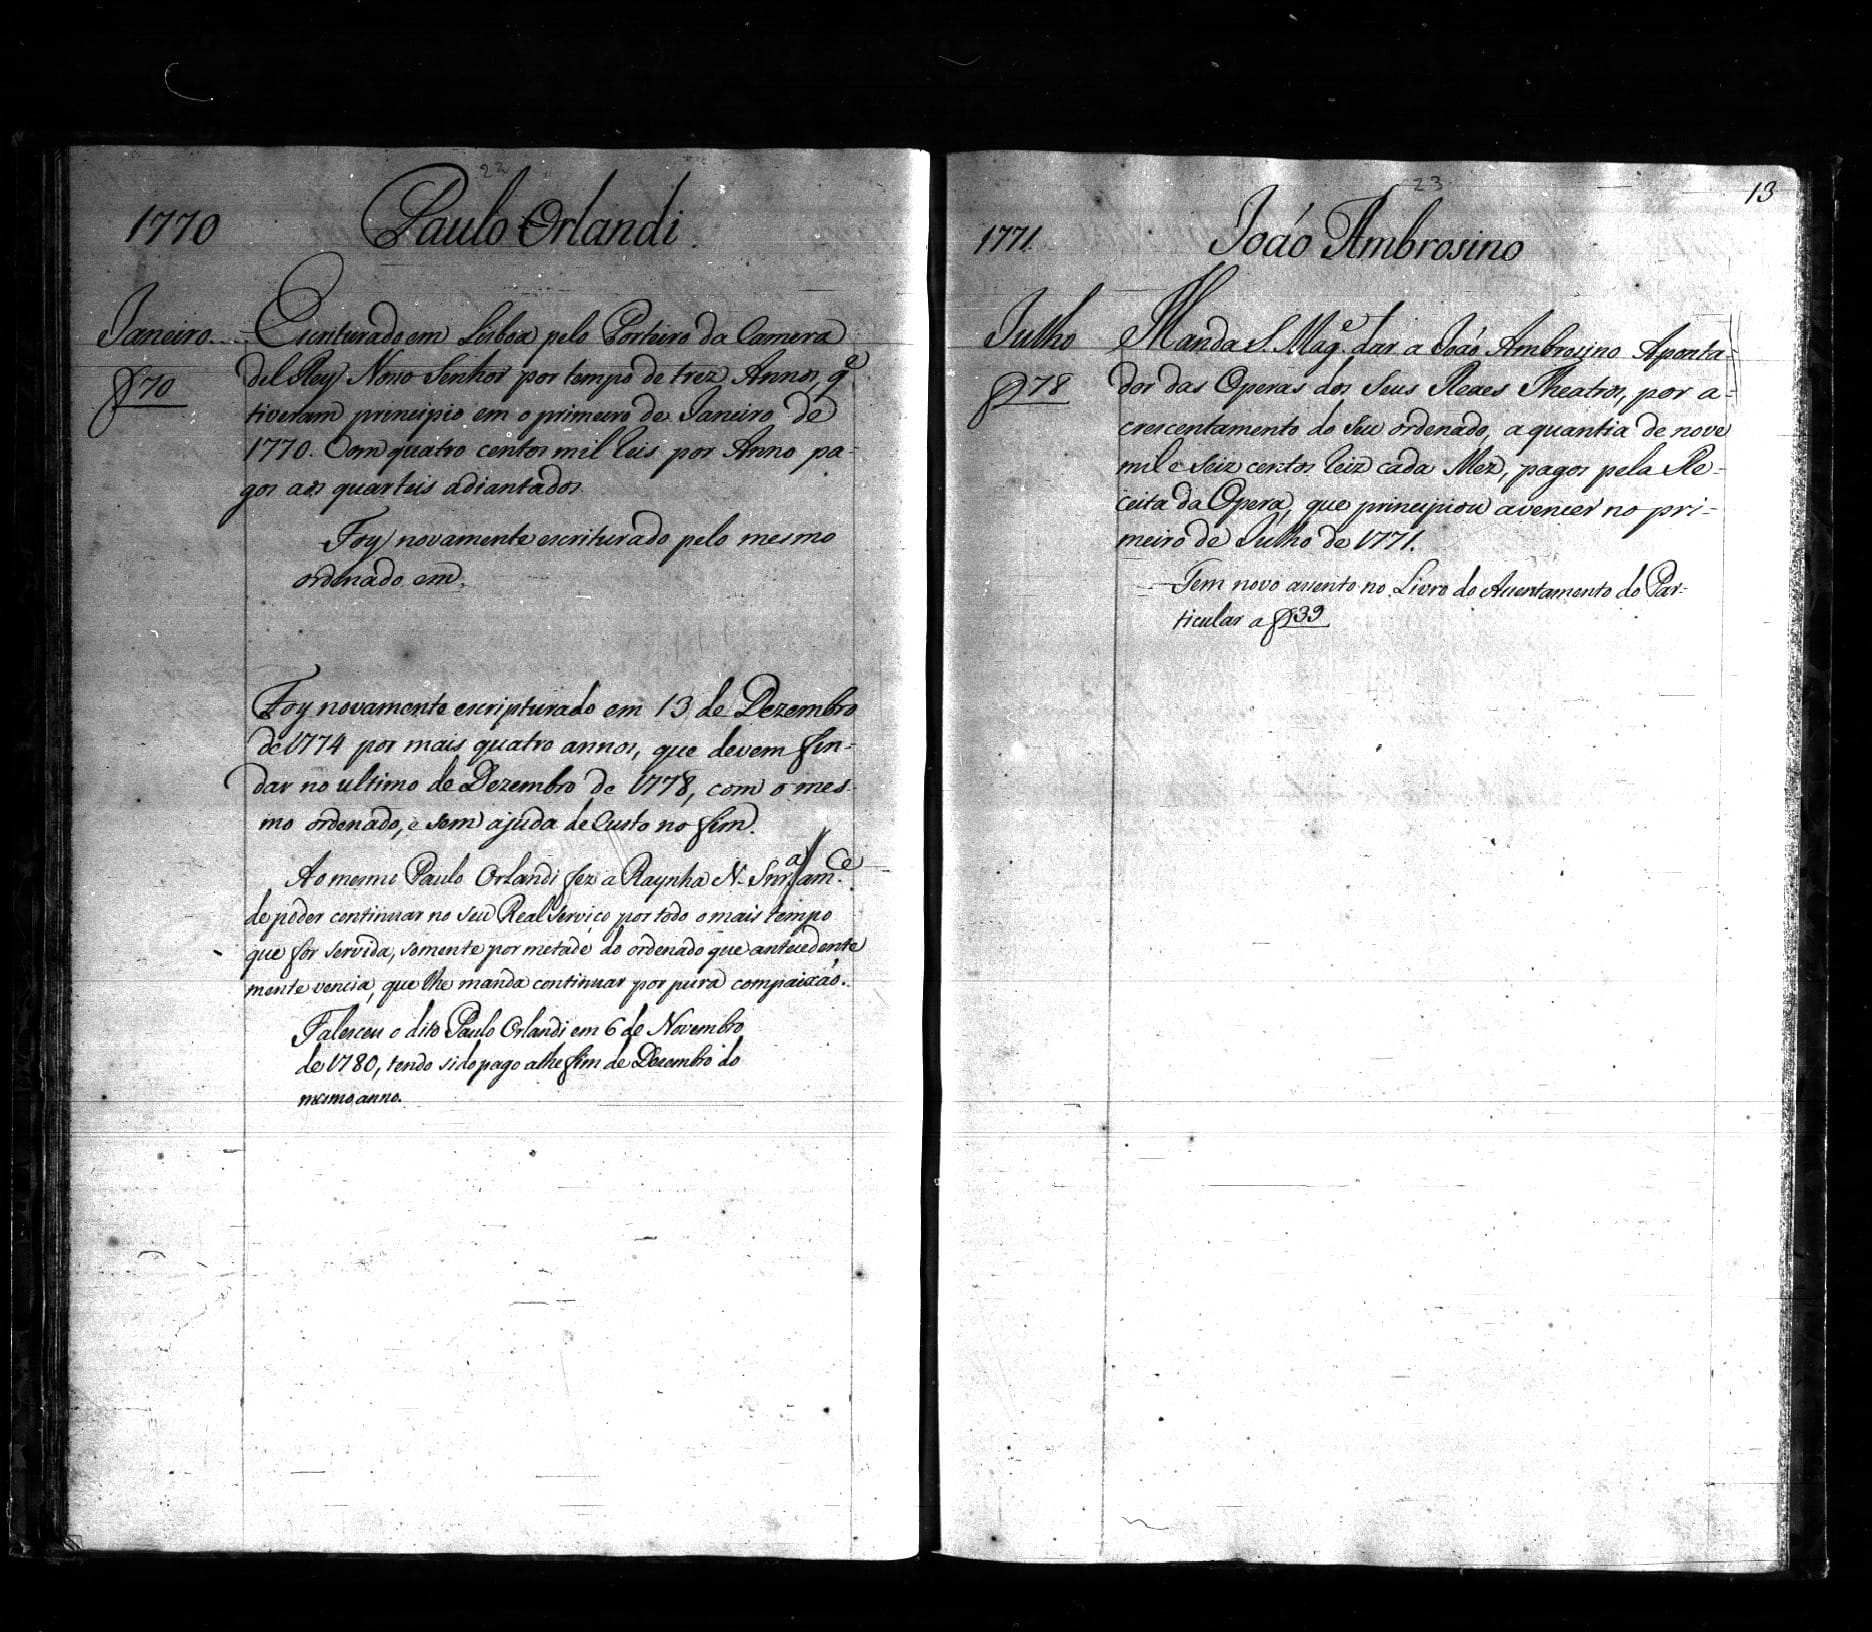 22
1770
Paulo Orlandi.
Janeiro
f 70
Escriturado em Lisboa pelo Porteiro da Camera
del Rey Noso Senhor por tempo de trez Annos, q̃
tiveram principio em o primeiro de Janeiro de
1770. Com quatro centos mil reis por Anno pa-
gos aos quarteis adiantados.
Foy novamente escriturado pelo mesmo
ordenado em
Foy novamente escripturado em 13 de Dezembro
de 1774 por mais quatro annos, que devem fin-
dar no ultimo de Dezembro de 1778, com o mes-
mo ordenado, e sem ajuda de Custo no fim.
Ao mesmo Paulo Orlandi fez a Raynha N. Snr.ª a m.ce
de poder continuar no seu Real Serviço por todo o mais tempo
que for servida, somente por metade do ordenado que antecedente
mente vencia, que lhe manda continuar por pura compaixão.
Faleceu o dito Paulo Orlandi em 6 de Novembro
de 1780, tendo sido pago athe fim de Dezembro do
mesmo anno.
23
13
1771.
João Ambrosino
Julho
f 78
Manda S. Mag.e dar a João Ambrosino Aponta-
dor das Operas dos Seus Reaes Theatros, por a-
crescentamento do Seu ordenado, a quantia de nove
mil e Seiz centos reiz cada Mez, pagos pela Re-
ceita da Opera, que principiou a vencer no pri-
meiro de Julho de 1771.
Tem novo assento no Livro do Assentamento do Par-
ticular a f 39